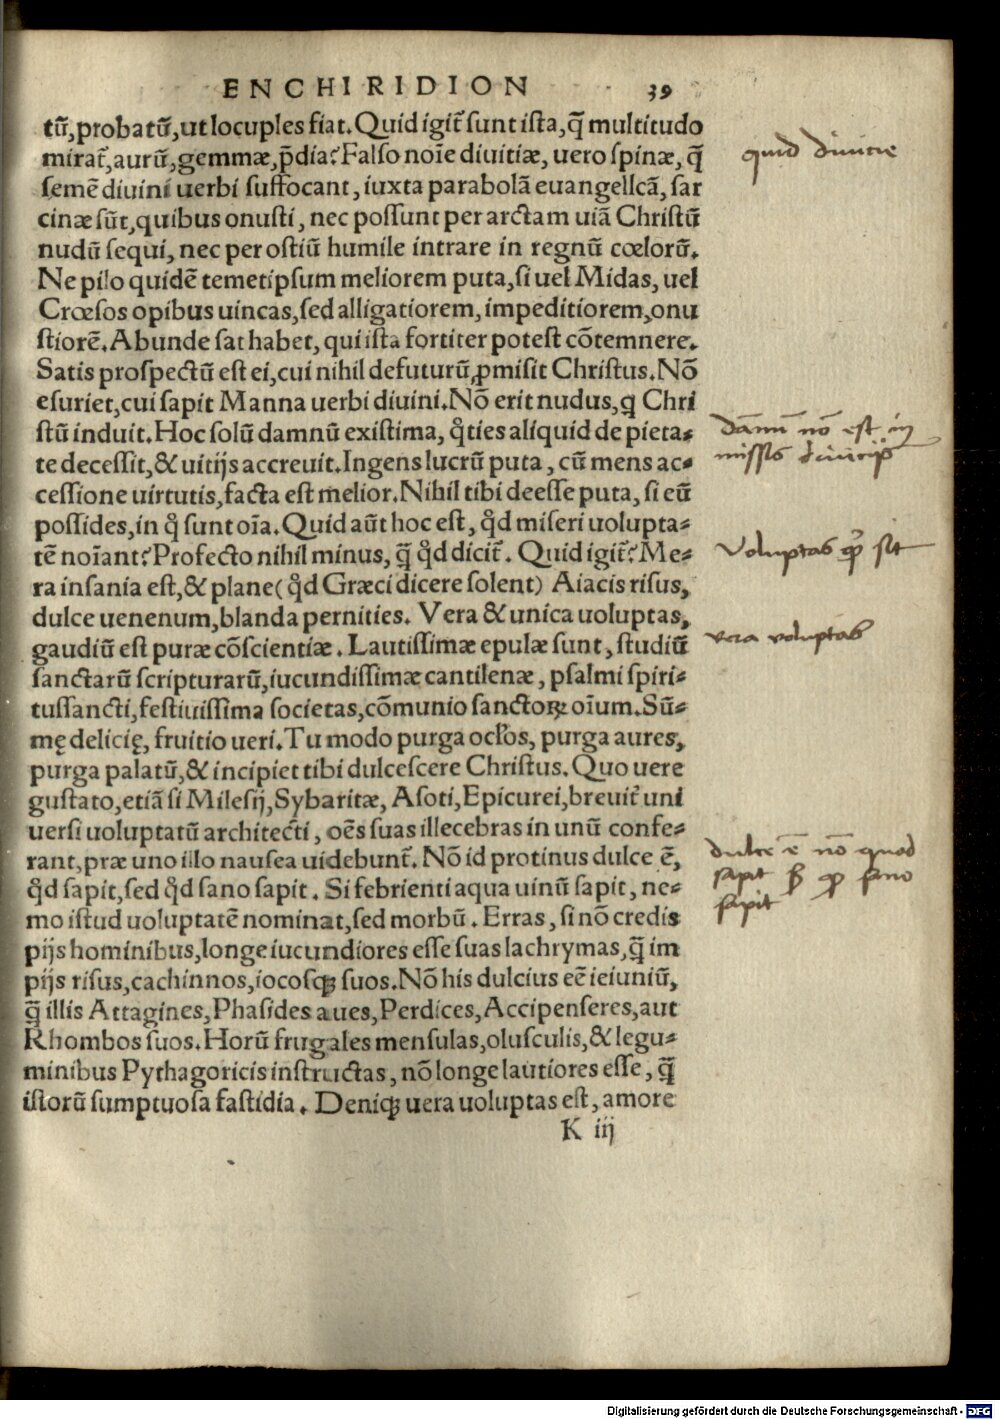 ENCHIRIDION 39
tũ,probatũ,ut locuples fiat.Quid igit̃ sunt ista,q̃ multitudo
mirat̃,aurũ,gemmæ,p̃dia?Falso noĩe diuitiæ,uero spinæ,q̃
semẽ diuini uerbi suffocant,iuxta parabolã euangelicã,sar
cinæ sũt,quibus onusti,nec possunt per arctam uiã Christũ
nudũ sequi,nec per ostiũ humile intrare in regnũ cœlorũ.
Ne pilo quidẽ temetipsum meliorem puta,si uel Midas,uel
Crœsos opibus uincas,sed alligatiorem,impeditiorem,onu
stiorẽ.Abunde sat habet,qui ista fortiter potest cõtemnere.
Satis prospectũ est ei,cui nihil defuturũ ꝓmisit Christus.Nõ
esuriet,cui sapit Manna uerbi diuini.Nõ erit nudus,q Chri
stũ induit.Hoc solũ damnũ existima,q̊ties aliquid de pieta-
te decessit,& uitijs accreuit.Ingens lucrũ puta,cũ mens ac-
cessione uirtutis,facta est melior.Nihil tibi deesse puta,si eũ
possides,in q̊ sunt oĩa.Quid aũt hoc est,q̊d miseri uolupta-
tẽ noĩant?Profecto nihil minus,q̃ q̊d dicit̃.Quid igit̃?Me-
ra insania est,& plane(q̊d Græci dicere solent) Aiacis risus,
dulce uenenum,blanda pernities. Vera & unica uoluptas,
gaudiũ est puræ cõscientiæ.Lautissimæ epulæ sunt,studiũ
sanctarũ scripturarũ,iucundissimæ cantilenæ,psalmi spiri-
tussancti,festiuissima societas,cõmunio sanctoꝝ oĩum.Sũ-
mę delicię,fruitio ueri.Tu modo purga ocl̃os,purga aures,
purga palatũ,& incipiet tibi dulcescere Christus.Quo uere
gustato,etiã si Milesij,Sybaritæ,Asoti,Epicurei,breuit̃ uni
uersi uoluptatũ architecti,oẽs suas illecebras in unũ confe-
rant,præ uno illo nausea uidebunt̃.Nõ id protinus dulce ẽ,
q̊d sapit,sed q̊d sano sapit.Si febrienti aqua uinũ sapit,ne-
mo istud uoluptatẽ nominat,sed morbũ.Erras,si nõ credis
pijs hominibus,longe iucundiores esse suas lachrymas,q̃ im
pijs risus,cachinnos,iocosqꝫ suos.Nõ his dulcius eẽ ieiuniũ,
q̃ illis Attagines,Phasides aues,Perdices,Accipenseres,aut
Rhombos suos.Horũ frugales mensulas,olusculis,& legu-
minibus Pythagoricis instructas,nõ longe lautiores esse,q̃
istorũ sumptuosa fastidia.Deniqꝫ uera uoluptas est,amore
K iij
quid diuitie
dãnũ nõ est
diuitijs
Voluptas sit
vera voluptas
dulce ẽ nõ quod
sapit sano
sapit
Digitalisierung gefördert durch die Deutsche Forschungsgemeinschaft - DFG